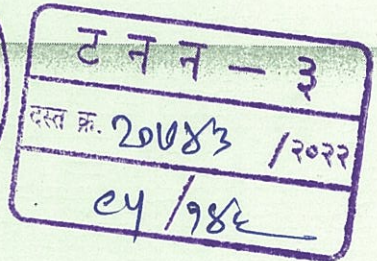 ट न न — ३
दस्त क्र. २०७४३ /२०२२
९५ /१४६